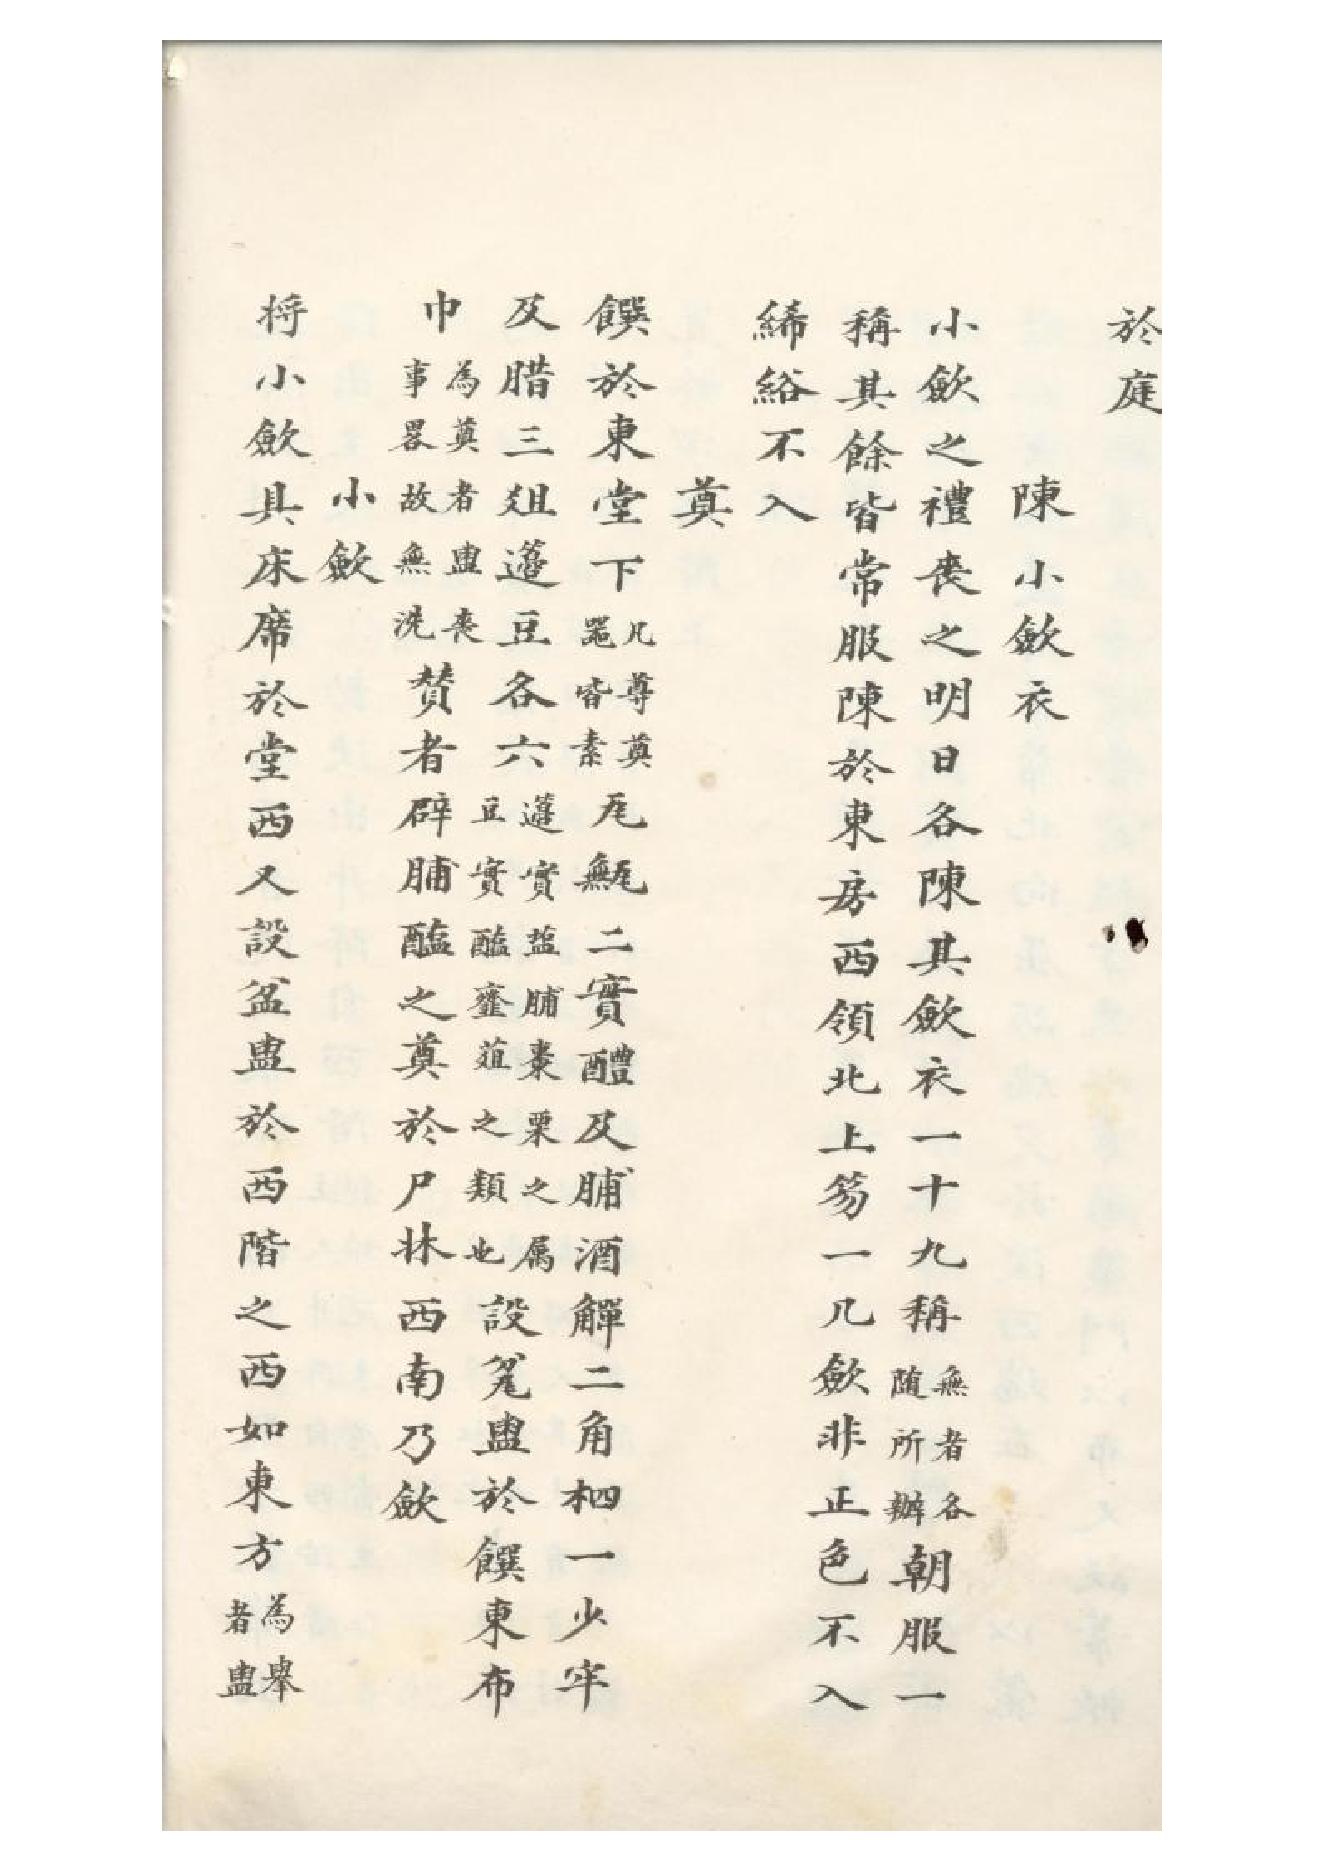 於庭
陳小歛衣
小歛之禮喪之明日各陳其歛衣一十九稱無者各随所辦朝服一
稱其餘皆常服陳於東房西領北上笏一凡歛非正色不入
絺綌不入
奠
饌於東堂下凡尊奠噐皆素瓦甒二實醴及脯酒觶二角柶一少牢
及腊三爼籩豆各六籩實盐脯棗栗之属豆實醢虀葅之類也設盆盥於饌東布
巾為奠者盥喪事畧故無洗賛者辟脯醢之奠於尸牀西南乃歛
小歛
将小歛具床席於堂西又設盆盥於西階之西如東方為舉者盥